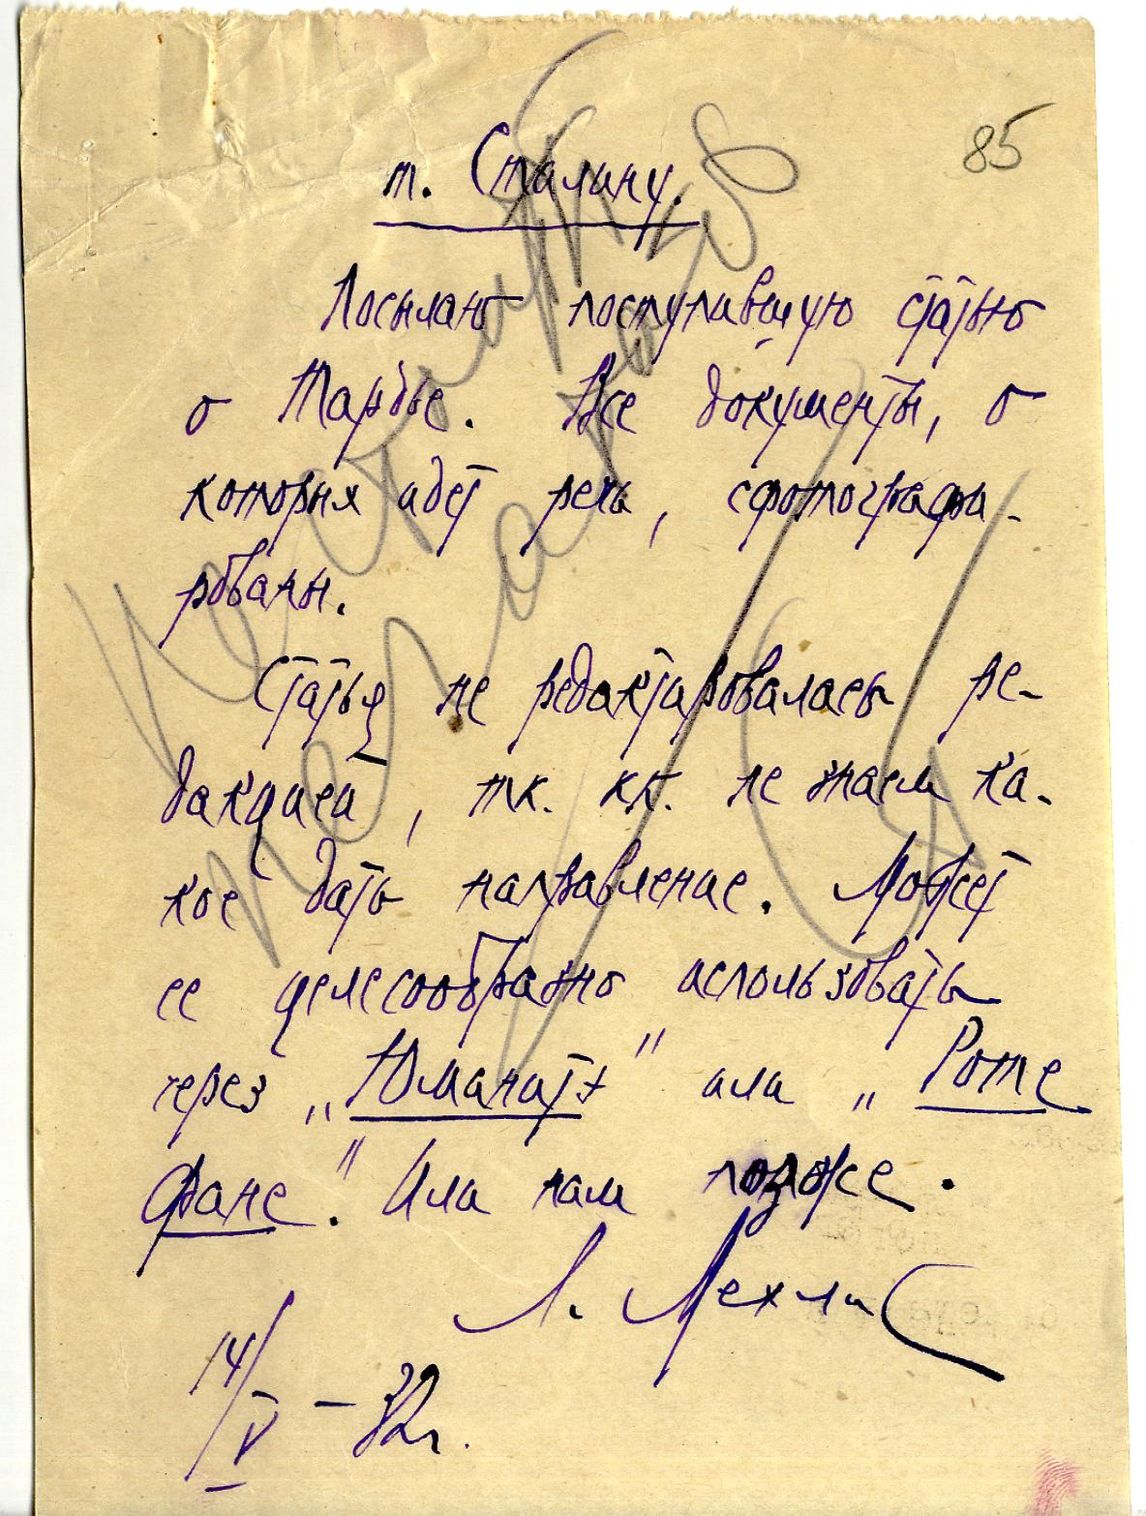 85
т. Сталину.
Посылаю поступившую статью
о Тардье. Все документы, о
которых идет речь, сфотографи-
рованы.
Статья не редактировалась ре-
дакцией, тк. не знаем ка-
кое дать направление. Может
ее целесообразно использовать
через „Юманитэ" или „Роте
Фане". Или нам позже.
Л. Мехлис
14/V – 32г.